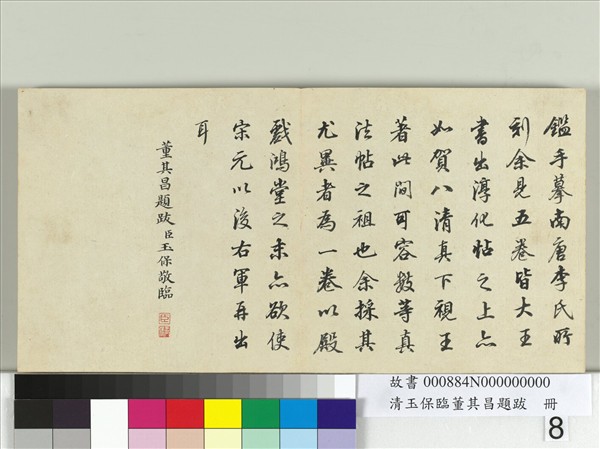 鑑手摹南唐李氏所
刻余見五卷皆大王
書出淳化帖之上亦
如賀八清真下視王
著此間可容數等真
法帖之祖也余採其
尤異者為一卷以殿
戲鴻堂之末亦欲使
宋元以後右軍再出
耳
董其昌題跋 臣玉保敬臨
故書 000884N000000000
清玉保臨董其昌題跋 冊
8